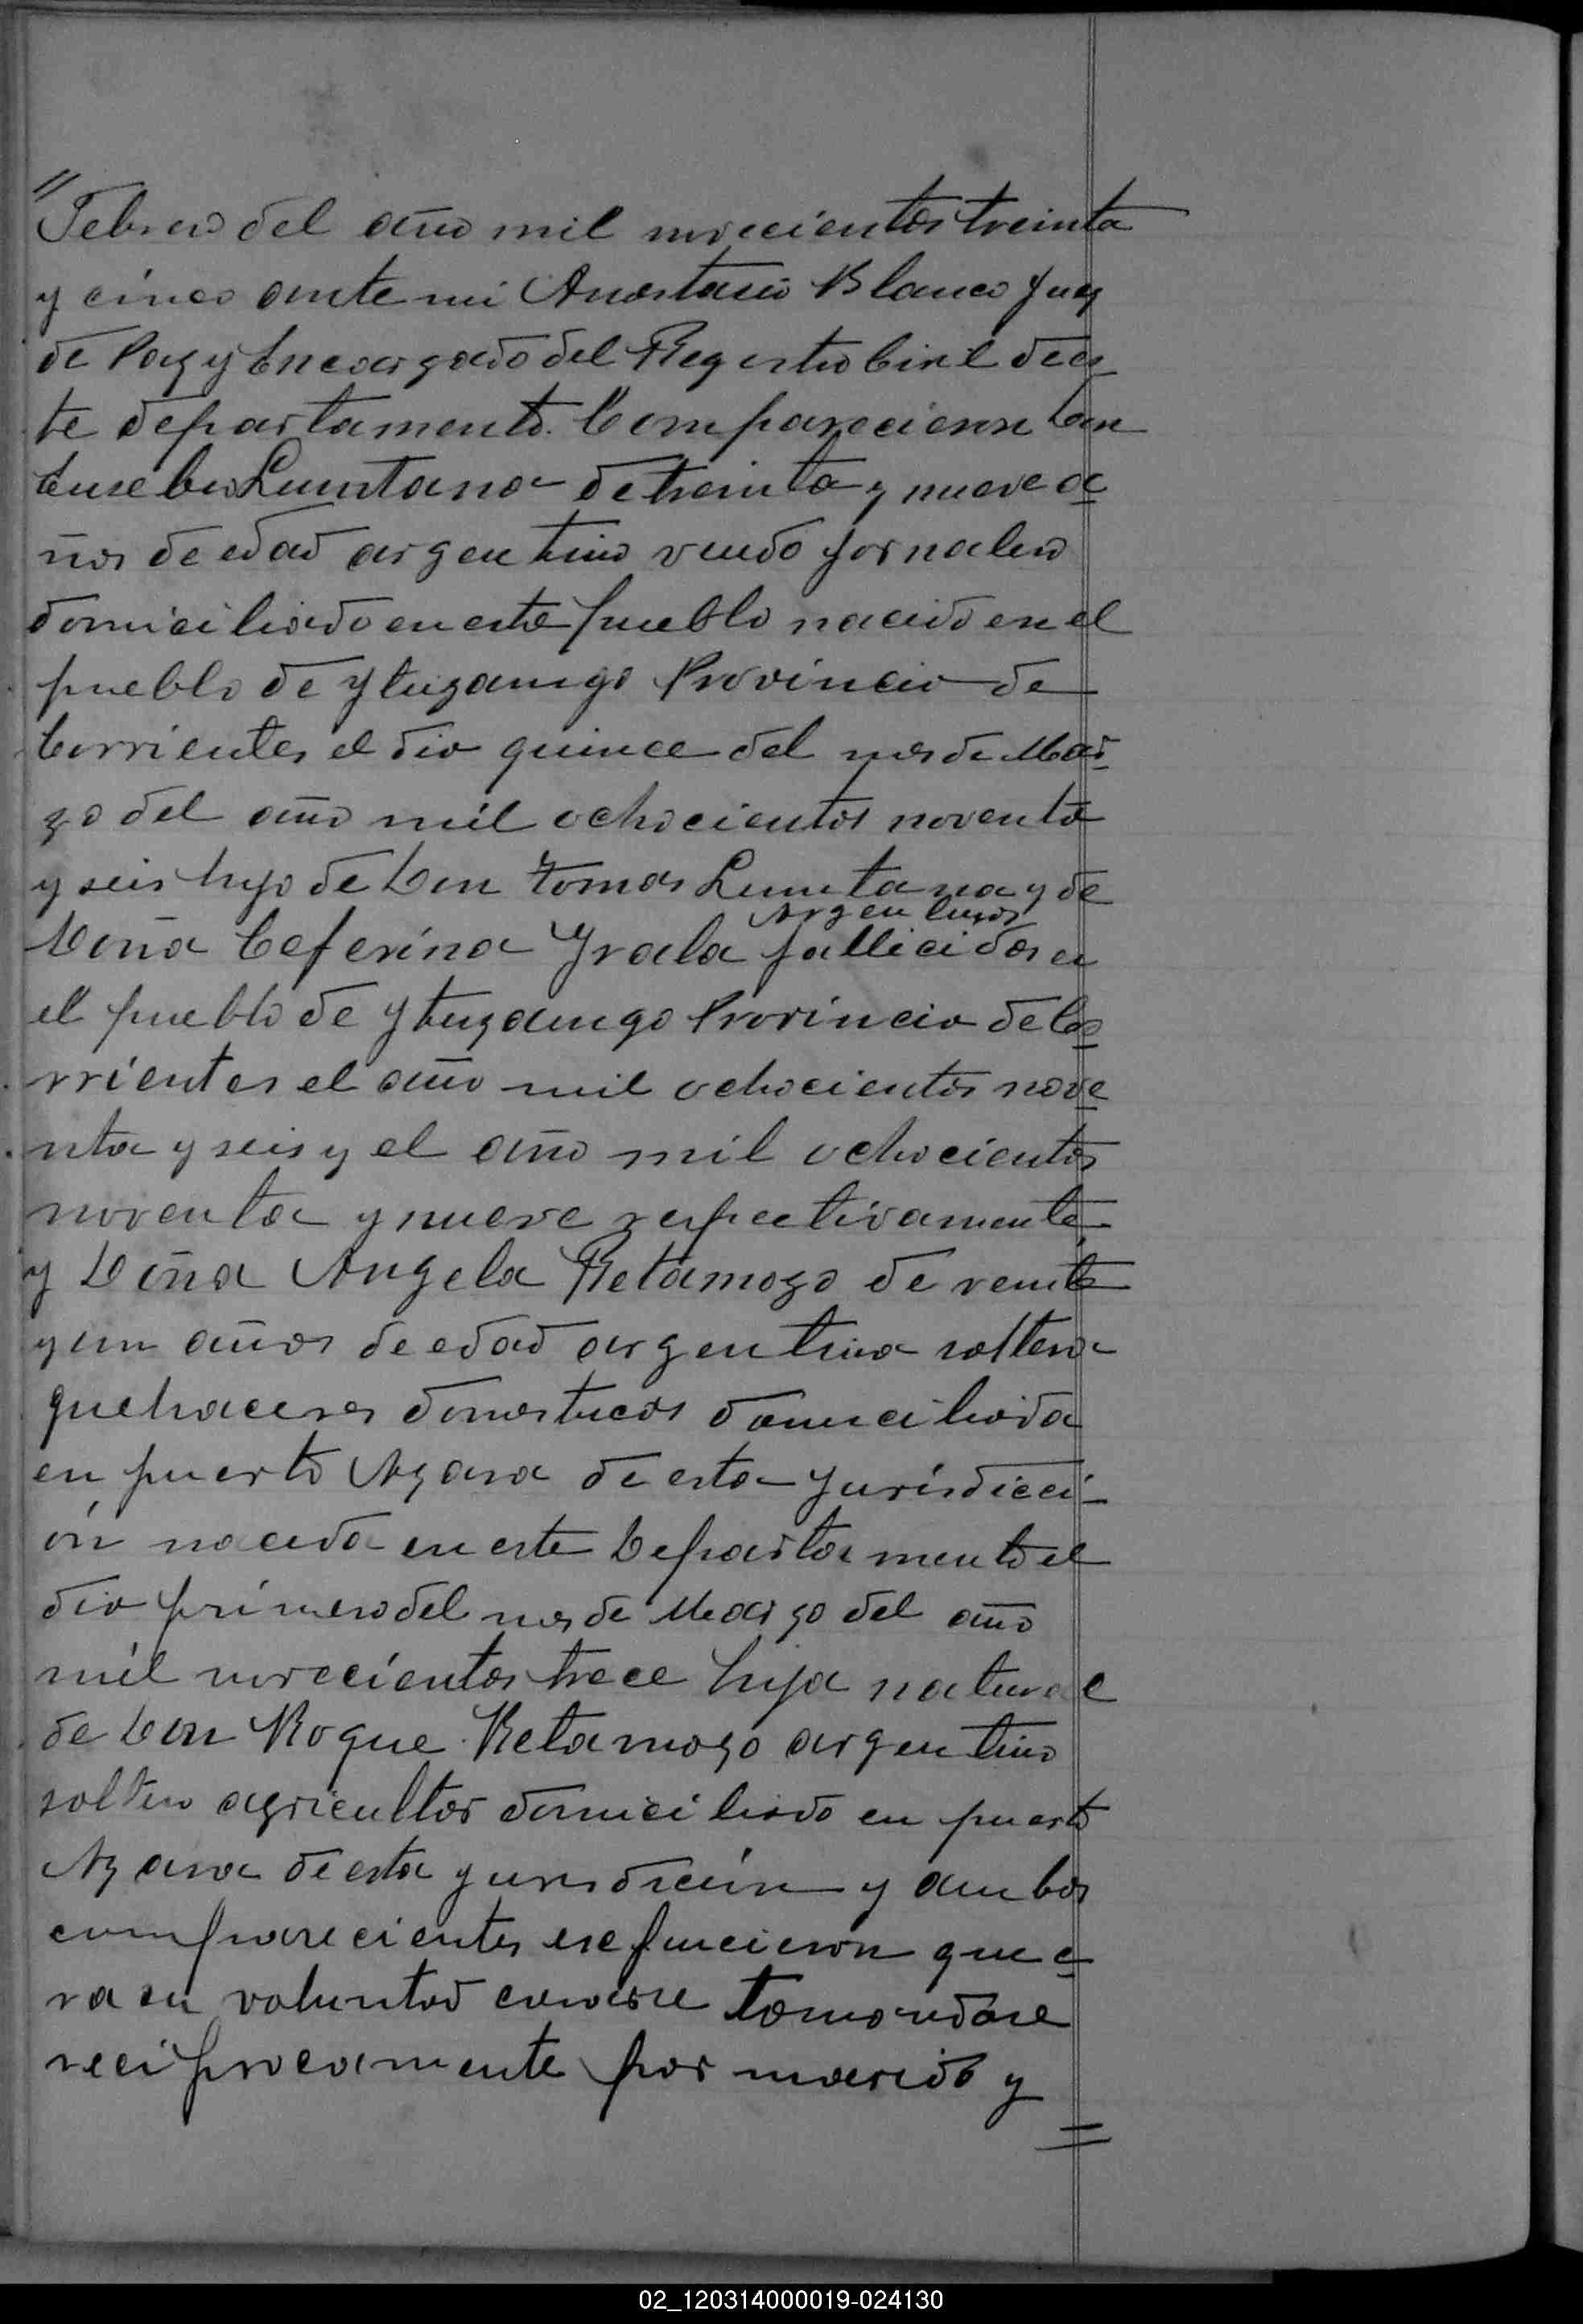 "
Febrero del año mil novecientos treinta
y cinco ante mi Anastacio Blanco Juez
de Paz y Encargado del Registro Civil de es
te departamento. Comparecieron Don
Eusebio Quintana de treinta y nueve a
ños de edad argentino viudo jornalero
domiciliado en este pueblo nacido en el
pueblo de Ytuzaingo Provincia de
Corrientes el dia quince del mes de Mar
zo del año mil ochocientos noventa
y seis hijo de Don Tomas Quintana y de
Argentinos
Doña Ceferina Yrala fallicidos en
el pueblo de Ytuzaingo Provincia de Co
rrientes el año mil ochocientos nove
nta y seis y el año mil ochocientos
noventa y nueve respectivamente
y Doña Angela Retamozo de veinte
y un años de edad argentina soltera
quehaceres domesticos domiciliada
en puerto Azara de esta Jurisdicci
ón nacida en este Departamento el
dia primero del mes de Marzo del año
mil novecientos trece hija natural
de Don Roque Retamozo argentino
soltero agricultor domiciliado en puerto
Azara de esta jurisdición y ambos
comparecientes que e
ra su voluntad tomandose
reciprocamente por marido y
=
02_120314000019-024130